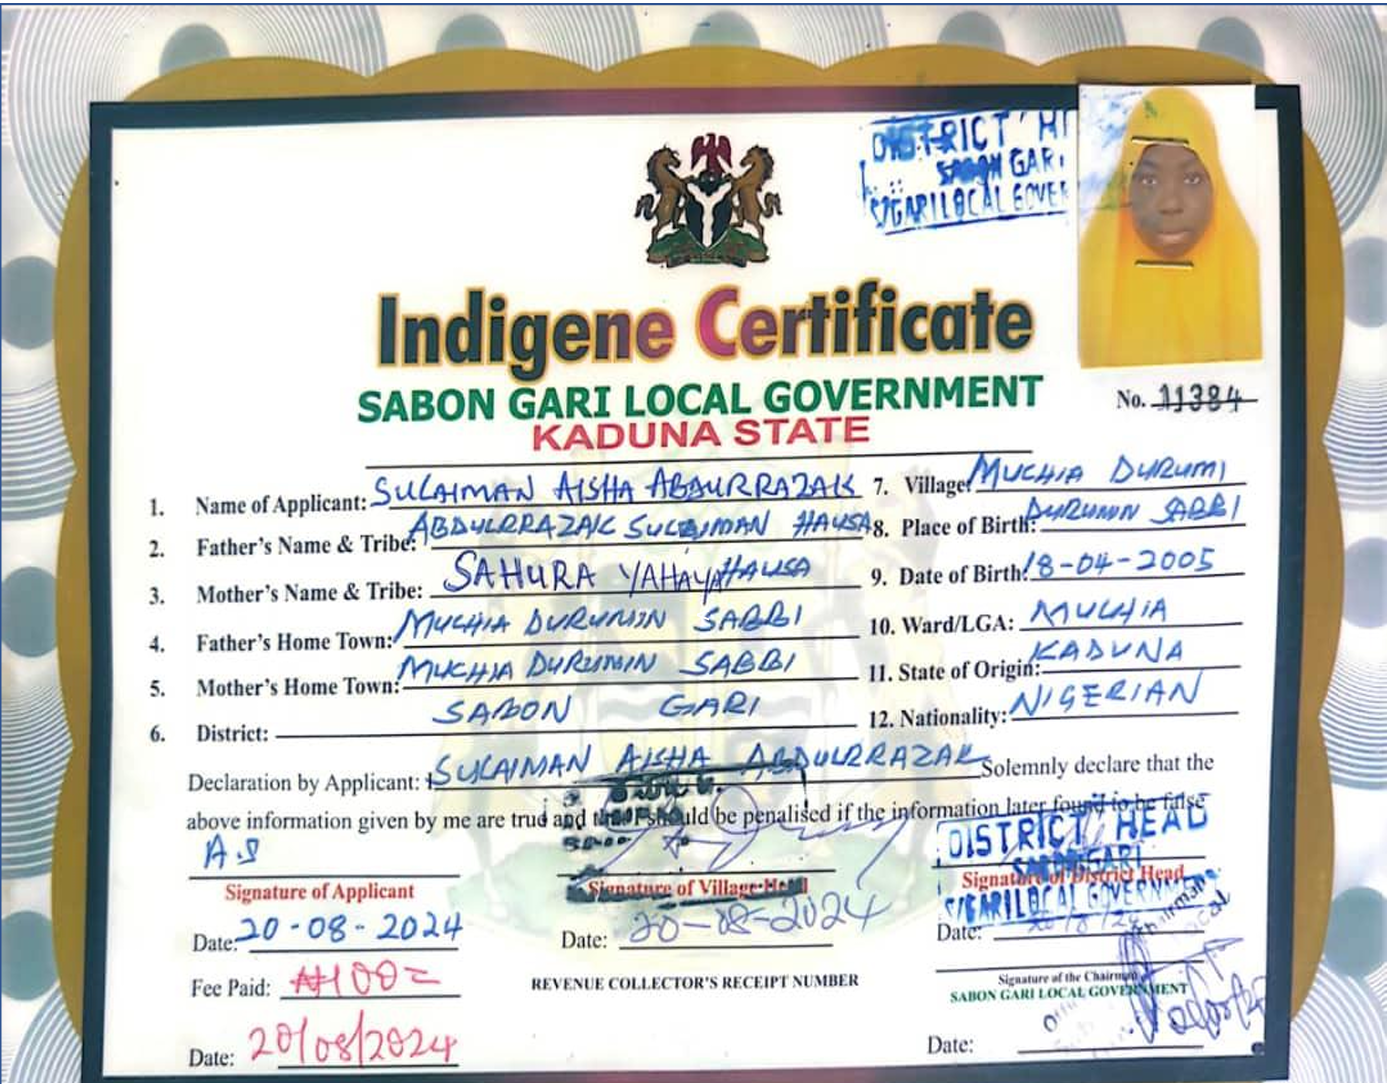 DISTRICT HE
SABON GARI
S/GARI LOCAL GOVER
Indigene Certificate
SABON GARI LOCAL GOVERNMENT
KADUNA STATE
No. 11384
1. Name of Applicant: SULAIMAN AISHA ABDURRAZAK
2. Father's Name & Tribe: ABDULRRAZAK SULAIMAN HAUSA
3. Mother's Name & Tribe: SAHURA YAHAYA HAUSA
4. Father's Home Town: MUCHIA DURUMIN SABBI
5. Mother's Home Town: MUCHIA DURUMIN SABBI
6. District: SABON GARI
7. Village: MUCHIA DURUMI
8. Place of Birth: DURUMIN SABBI
9. Date of Birth: 18-04-2005
10. Ward/LGA: MUCHIA
11. State of Origin: KADUNA
12. Nationality: NIGERIAN
Declaration by Applicant: I SULAIMAN AISHA ABDULRRAZAK Solemnly declare that the
above information given by me are true and that I should be penalised if the information later found to be false
A.S
Signature of Applicant
Date: 20-08-2024
Fee Paid: ₦100=
Date: 20/08/2024
Signature of Village Head
Date: 20-08-2024
REVENUE COLLECTOR'S RECEIPT NUMBER
DISTRICT HEAD
SABON GARI
Signature of District Head
S/GARI LOCAL GOVERNMENT
Date:
Signature of the Chairman
SABON GARI LOCAL GOVERNMENT
Date: